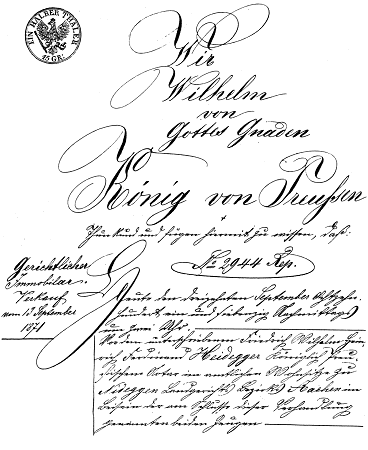 EIN HALBER THALER
15 GR.
Wir
Wilhelm
von
Gottes Gnaden
König von Preussen
Thun kund und fügen hiermit zu wissen, daß:
No 2944 Rep.
Gerichtlicher
Immobilar-
Verkauf
vom 13 September
1871
Heute den dreizehnten September Achtzehn-
hundert ein und siebenzig Nachmittags
um zwei Uhr
Vor dem unterschriebenen Friedrich Wilhelm Hein-
rich Ferdinand Heidegger Königlich Preu-
ßischem Notar im amtlichen Wohnsitze zu
Nideggen Landgerichts Bezirks Aachen im
Beisein der am Schlusse dieser Verhandlung
genannten beiden Zeugen